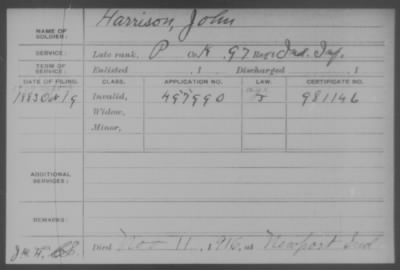 NAME OF SOLDIER: Harrison, John
SERVICE: Late rank, P Co. K 97 Reg't Ind. Inf.
TERM OF SERVICE: Enlisted , 1 Discharged , 1
DATE OF FILING. CLASS. APPLICATION NO. LAW. CERTIFICATE NO.
1883 Oct 19 Invalid, 497990 981146
Widow,
Minor,
ADDITIONAL SERVICES:
REMARKS:
Died Nov 11, 1916, at Newport Ind